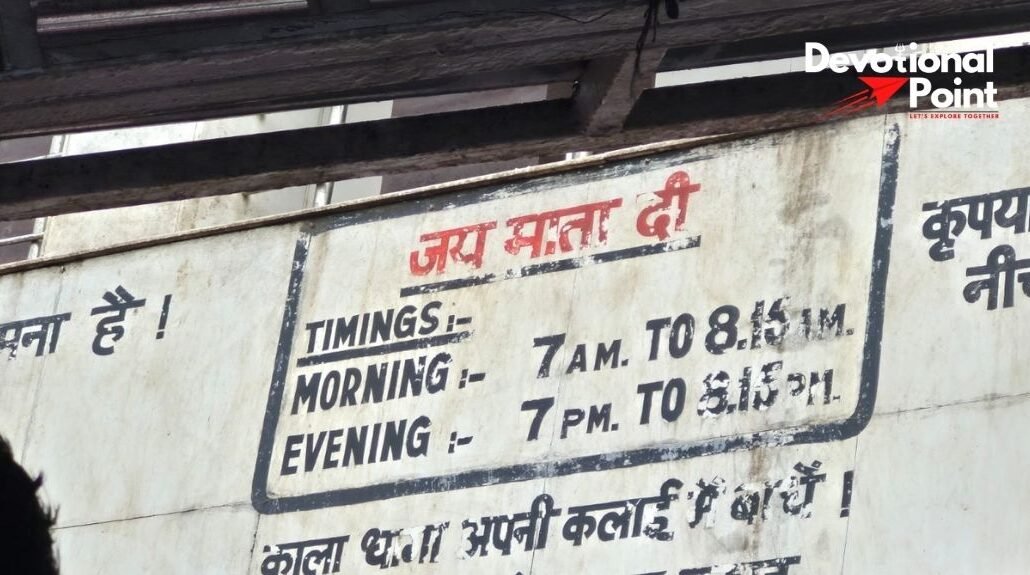 Devotional
Point
LET'S EXPLORE TOGETHER
जय माता दी
TIMINGS :-
MORNING :- 7 AM. TO 8.15 AM.
EVENING :- 7 PM. TO 8.15 PM.
है !
कृपया
काला धागा अपनी कलाई में बांधें !